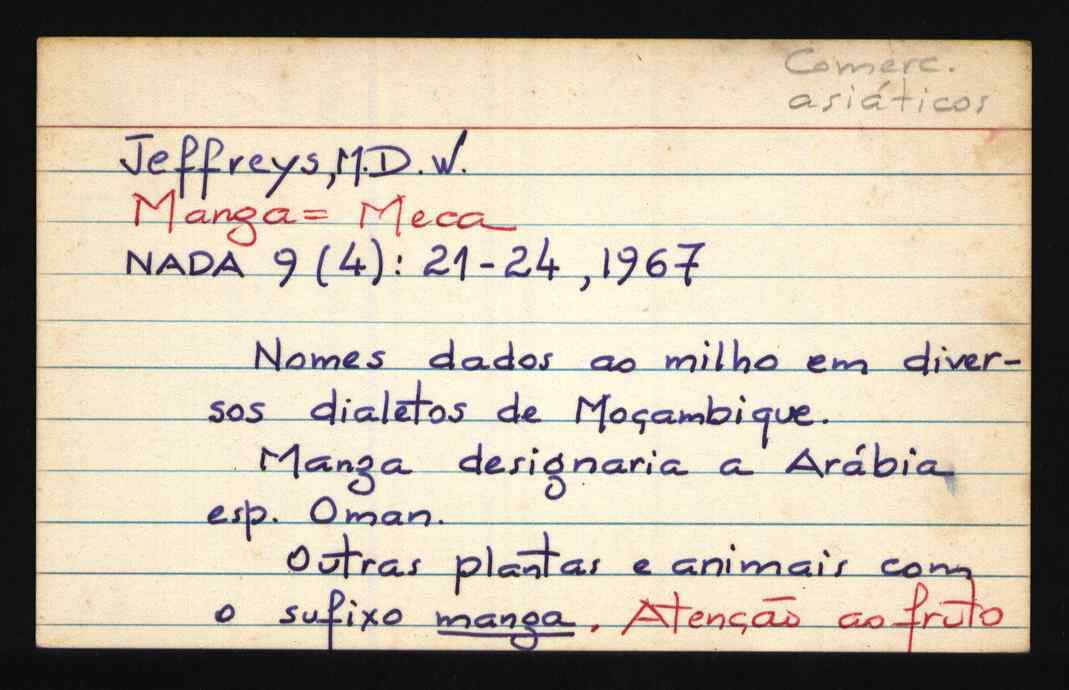 Comerc.
asiáticos
Jeffreys, M.D.W.
Manga = Meca
NADA 9 (4): 21-24, 1967
Nomes dados ao milho em diver-
sos dialetos de Moçambique.
Manga designaria a Arábia
esp. Oman.
Outras plantas e animais com
o sufixo manga. Atenção ao fruto